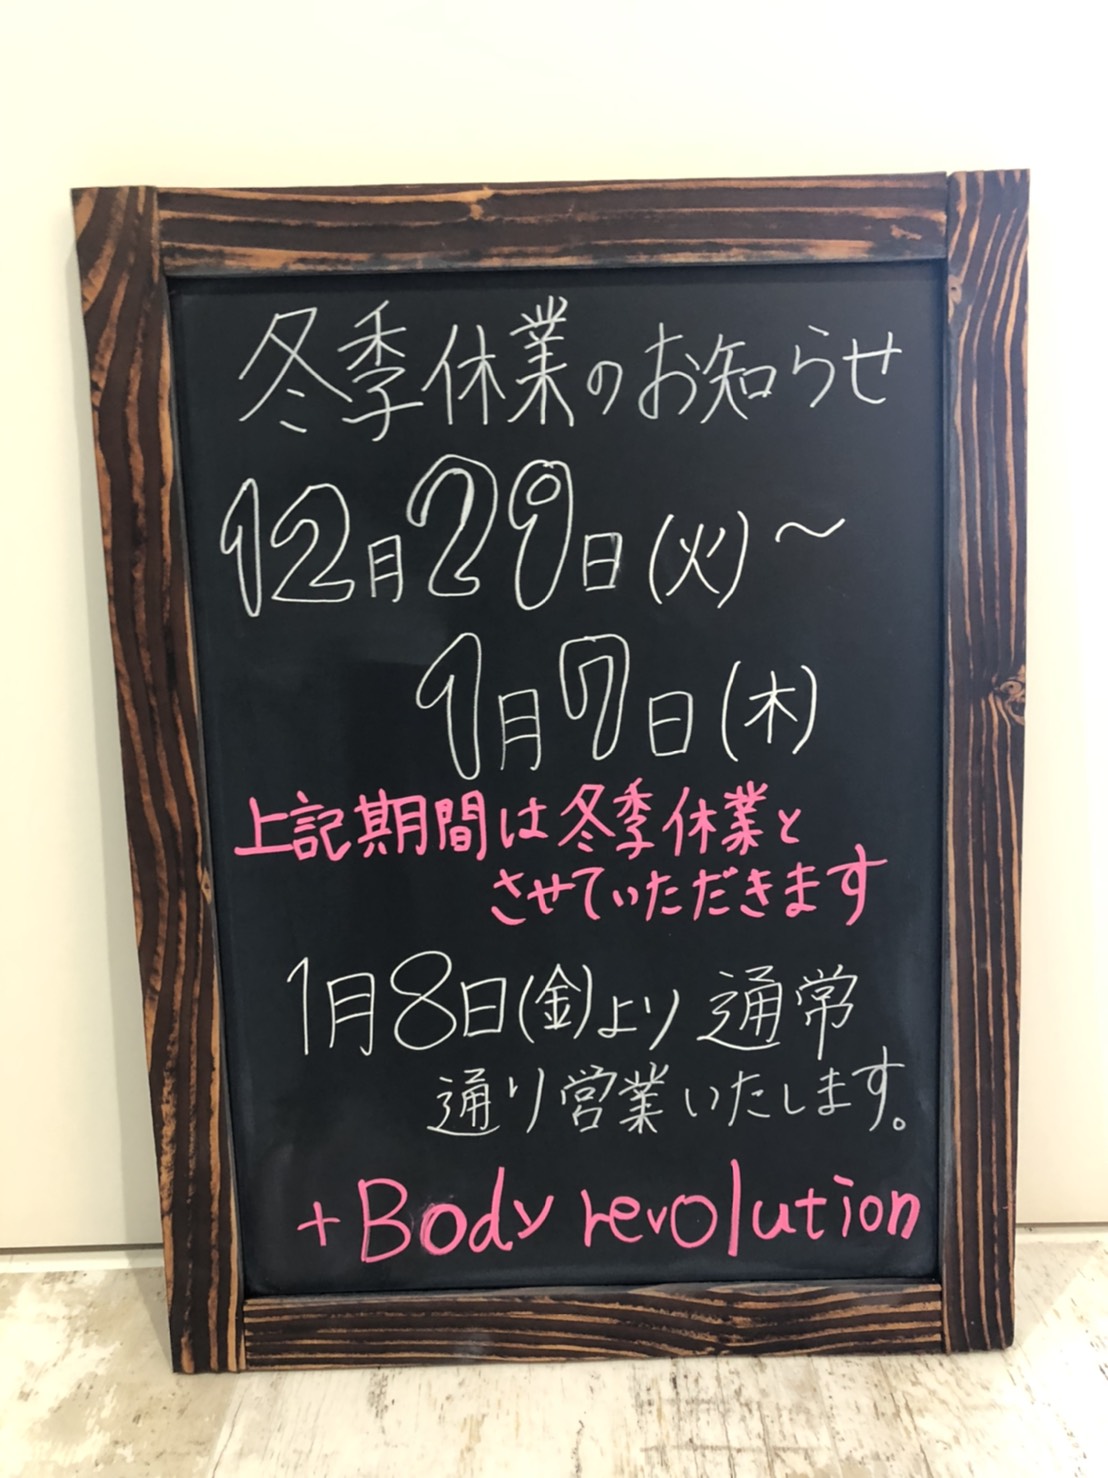 冬季休業のお知らせ
12月29日(火)~
1月7日(木)
上記期間は冬季休業と
させていただきます
1月8日(金)より通常
通り営業いたします。
+Body revolution